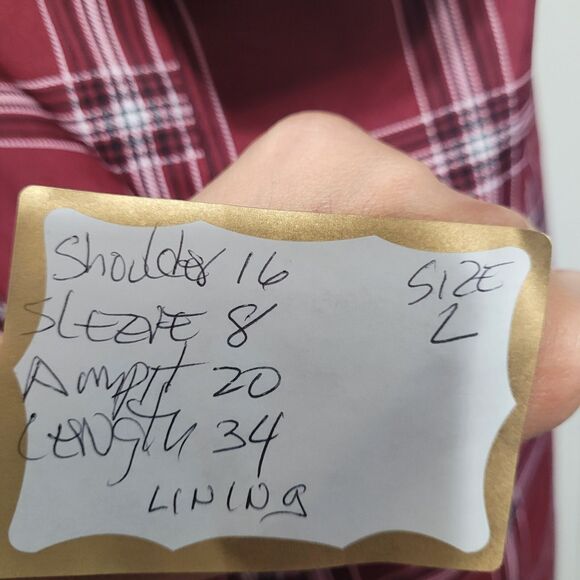 Shoulder 16
SLEEVE 8
Ampit 20
LENGTH 34
LINING
SIZE
L